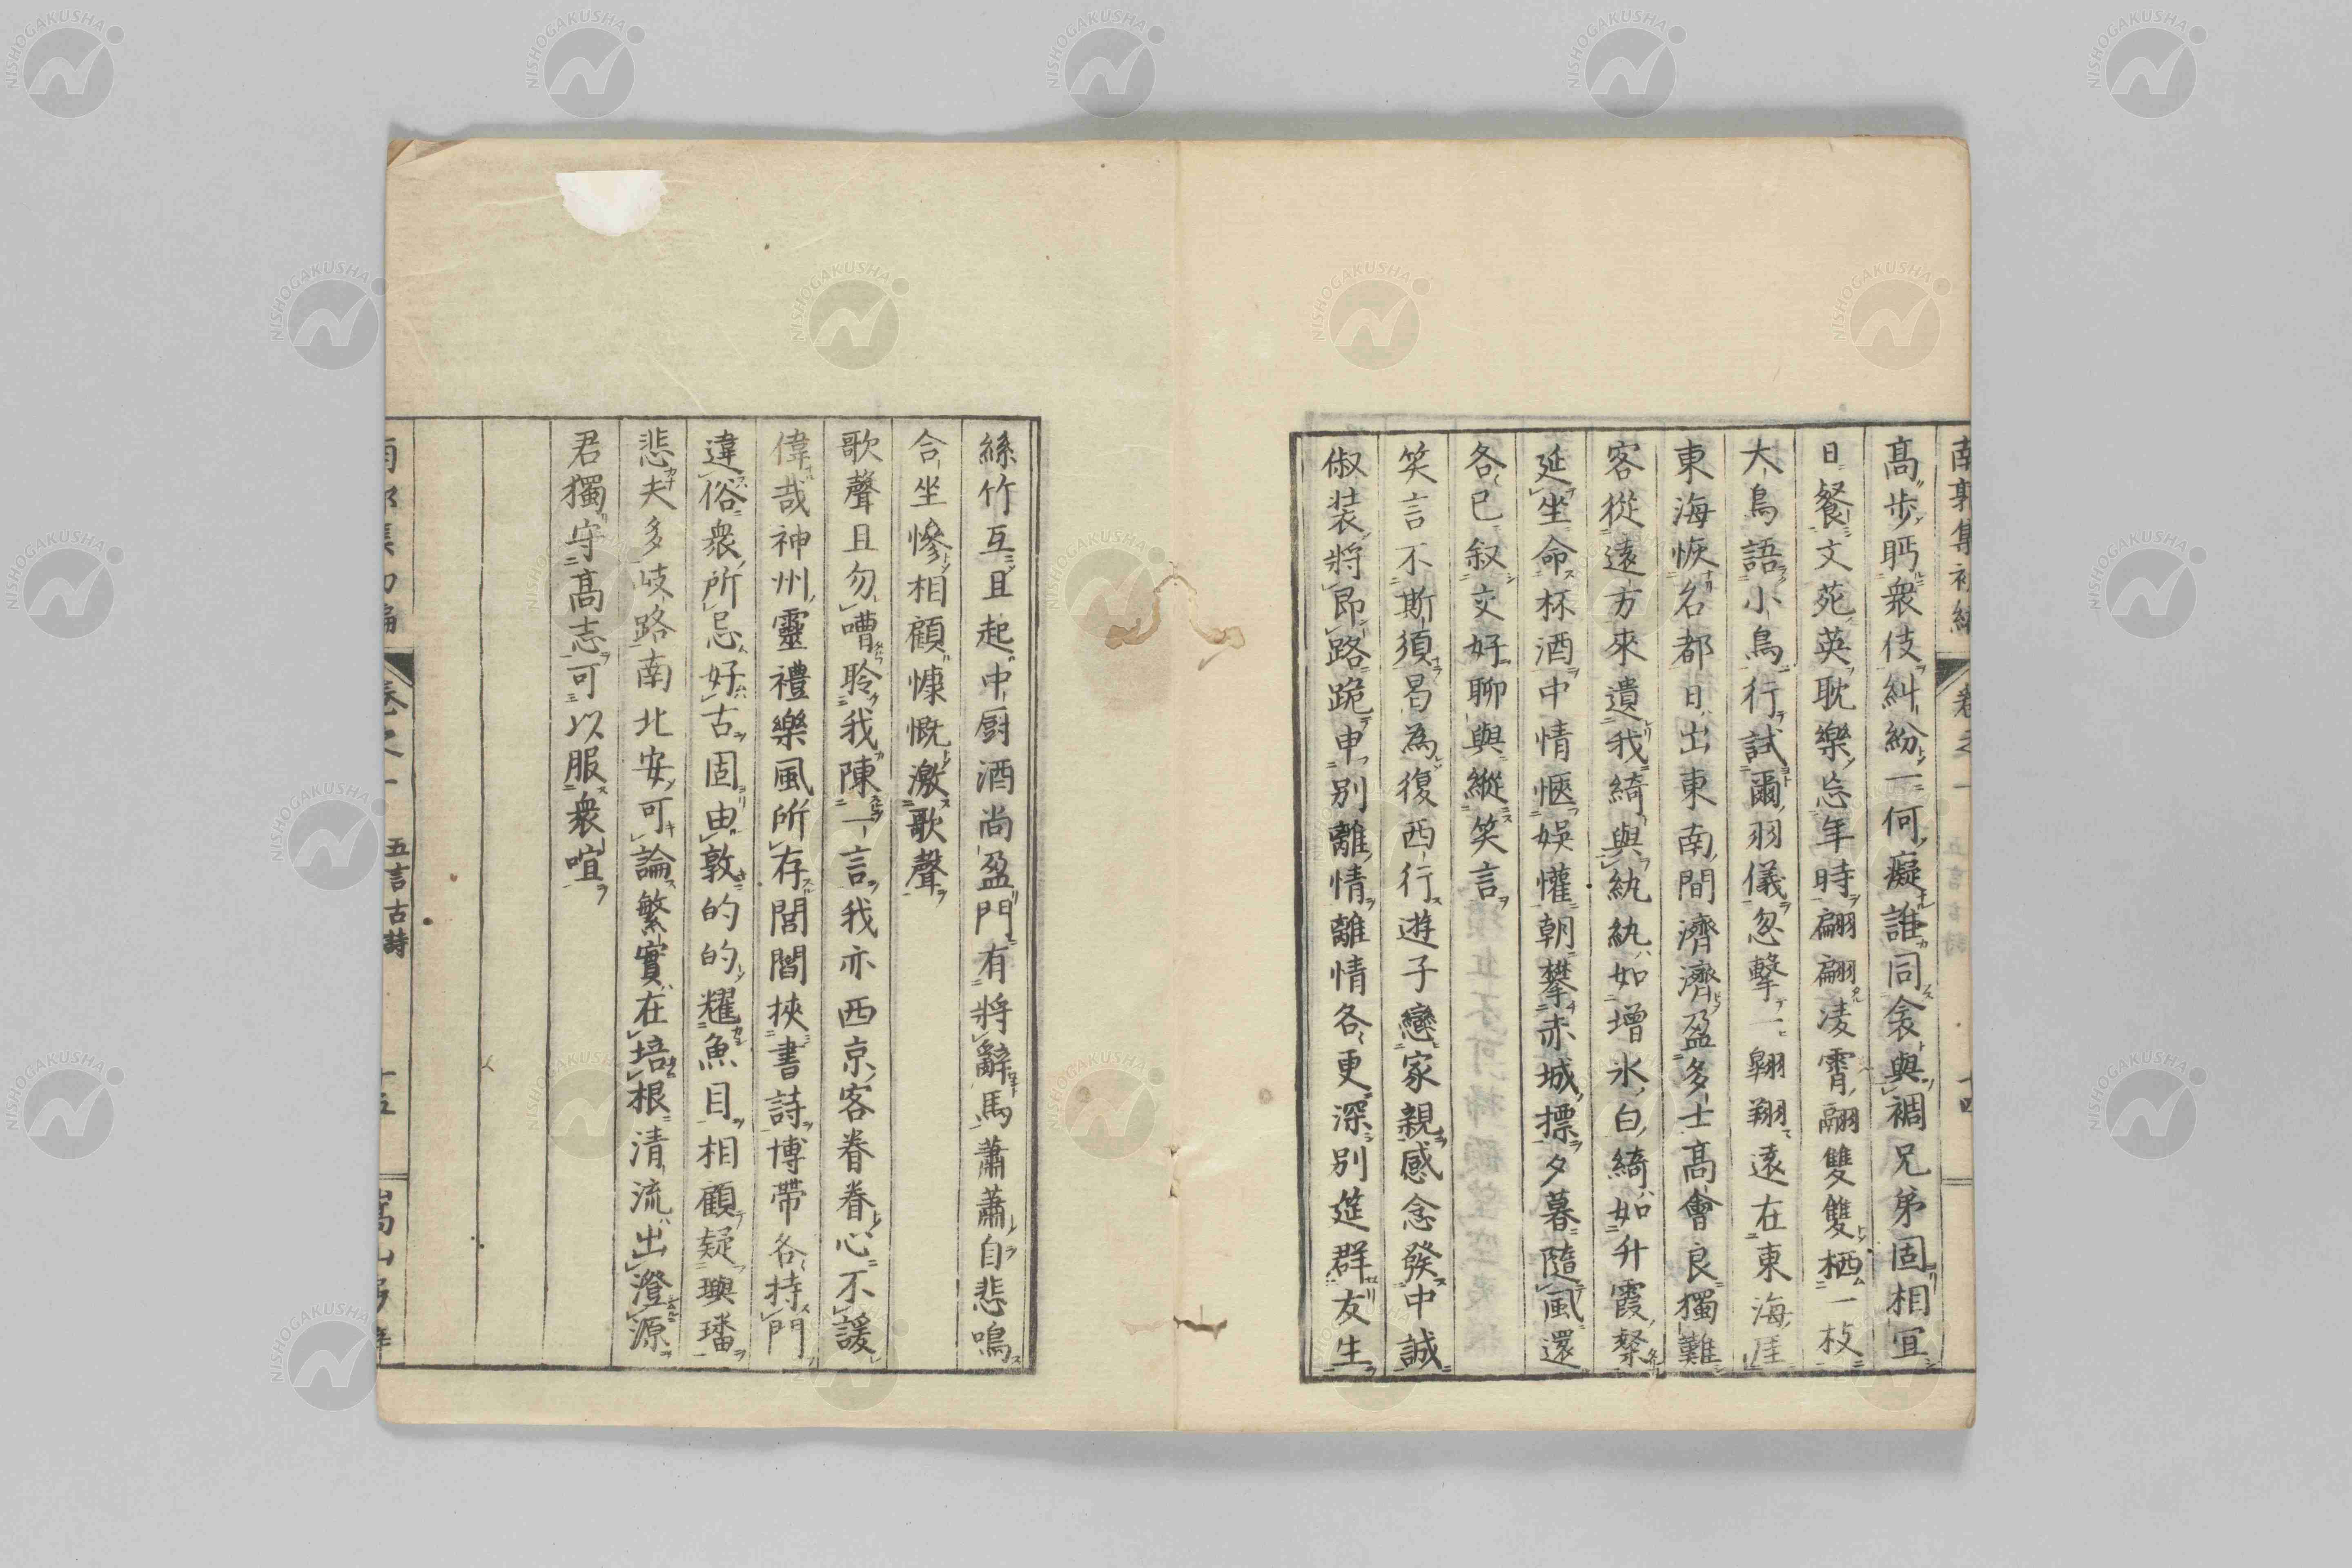 南郭集初編 卷之一 五言古詩 十四
高步眄衆伎糾紛一何癡誰同衾與裯兄弟固相宜
日餐文苑英耽樂忘年時翩翩凌霄翮雙雙栖一枝
大鳥語小鳥行試爾羽儀忽擊一翱翔遠在東海涯
東海恢名都日出東南間濟濟盈多士高會良獨難
客從遠方來遺我綺與紈紈如增冰白綺如升霞粲
延坐命杯酒中情愜娛懽朝攀赤城標夕暮隨風還
各已叙交好聊與縱笑言
笑言不斯須曷為復西行遊子戀家親感念發中誠
俶装將即路跪申別離情離情各更深別筵群友生
絲竹互且起中厨酒尚盈門有將辭馬蕭蕭自悲鳴
合坐慘相顧慷慨激歌聲
歌聲且勿嘈聆我陳一言我亦西京客眷眷心不諼
偉哉神州靈禮樂風所存閭閻挾書詩博帶各持門
違俗衆所忌好古固由敦的的耀魚目相顧疑璵璠
悲夫多岐路南北安可論繁實在培根清流出澄源
君獨守高志可以服衆喧
南郭集初編 卷之一 五言古詩 十五 嵩山房梓
NISHOGAKUSHA